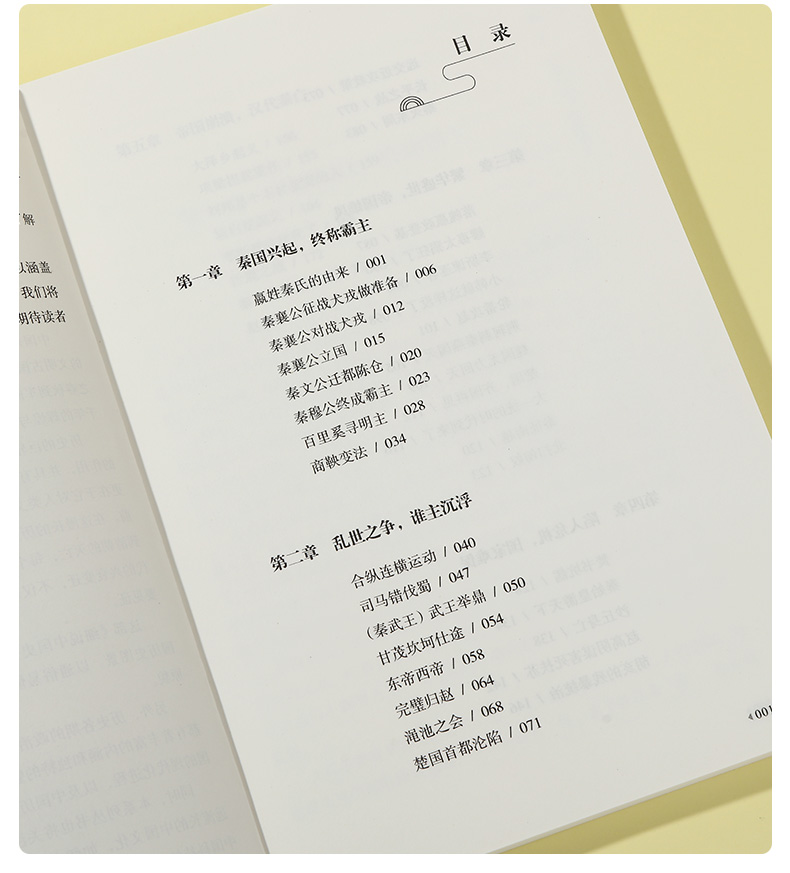 目 录
了解
以涵盖
我们将
期待读者
第一章 秦国兴起，终称霸主
嬴姓秦氏的由来 / 001
秦襄公征战犬戎做准备 / 006
秦襄公对战犬戎 / 012
秦襄公立国 / 015
秦文公迁都陈仓 / 020
秦穆公终成霸主 / 023
百里奚寻明主 / 028
商鞅变法 / 034
第二章 乱世之争，谁主沉浮
合纵连横运动 / 040
司马错伐蜀 / 047
（秦武王）武王举鼎 / 050
甘茂坎坷仕途 / 054
东帝西帝 / 058
完璧归赵 / 064
渑池之会 / 068
楚国首都沦陷 / 071
001